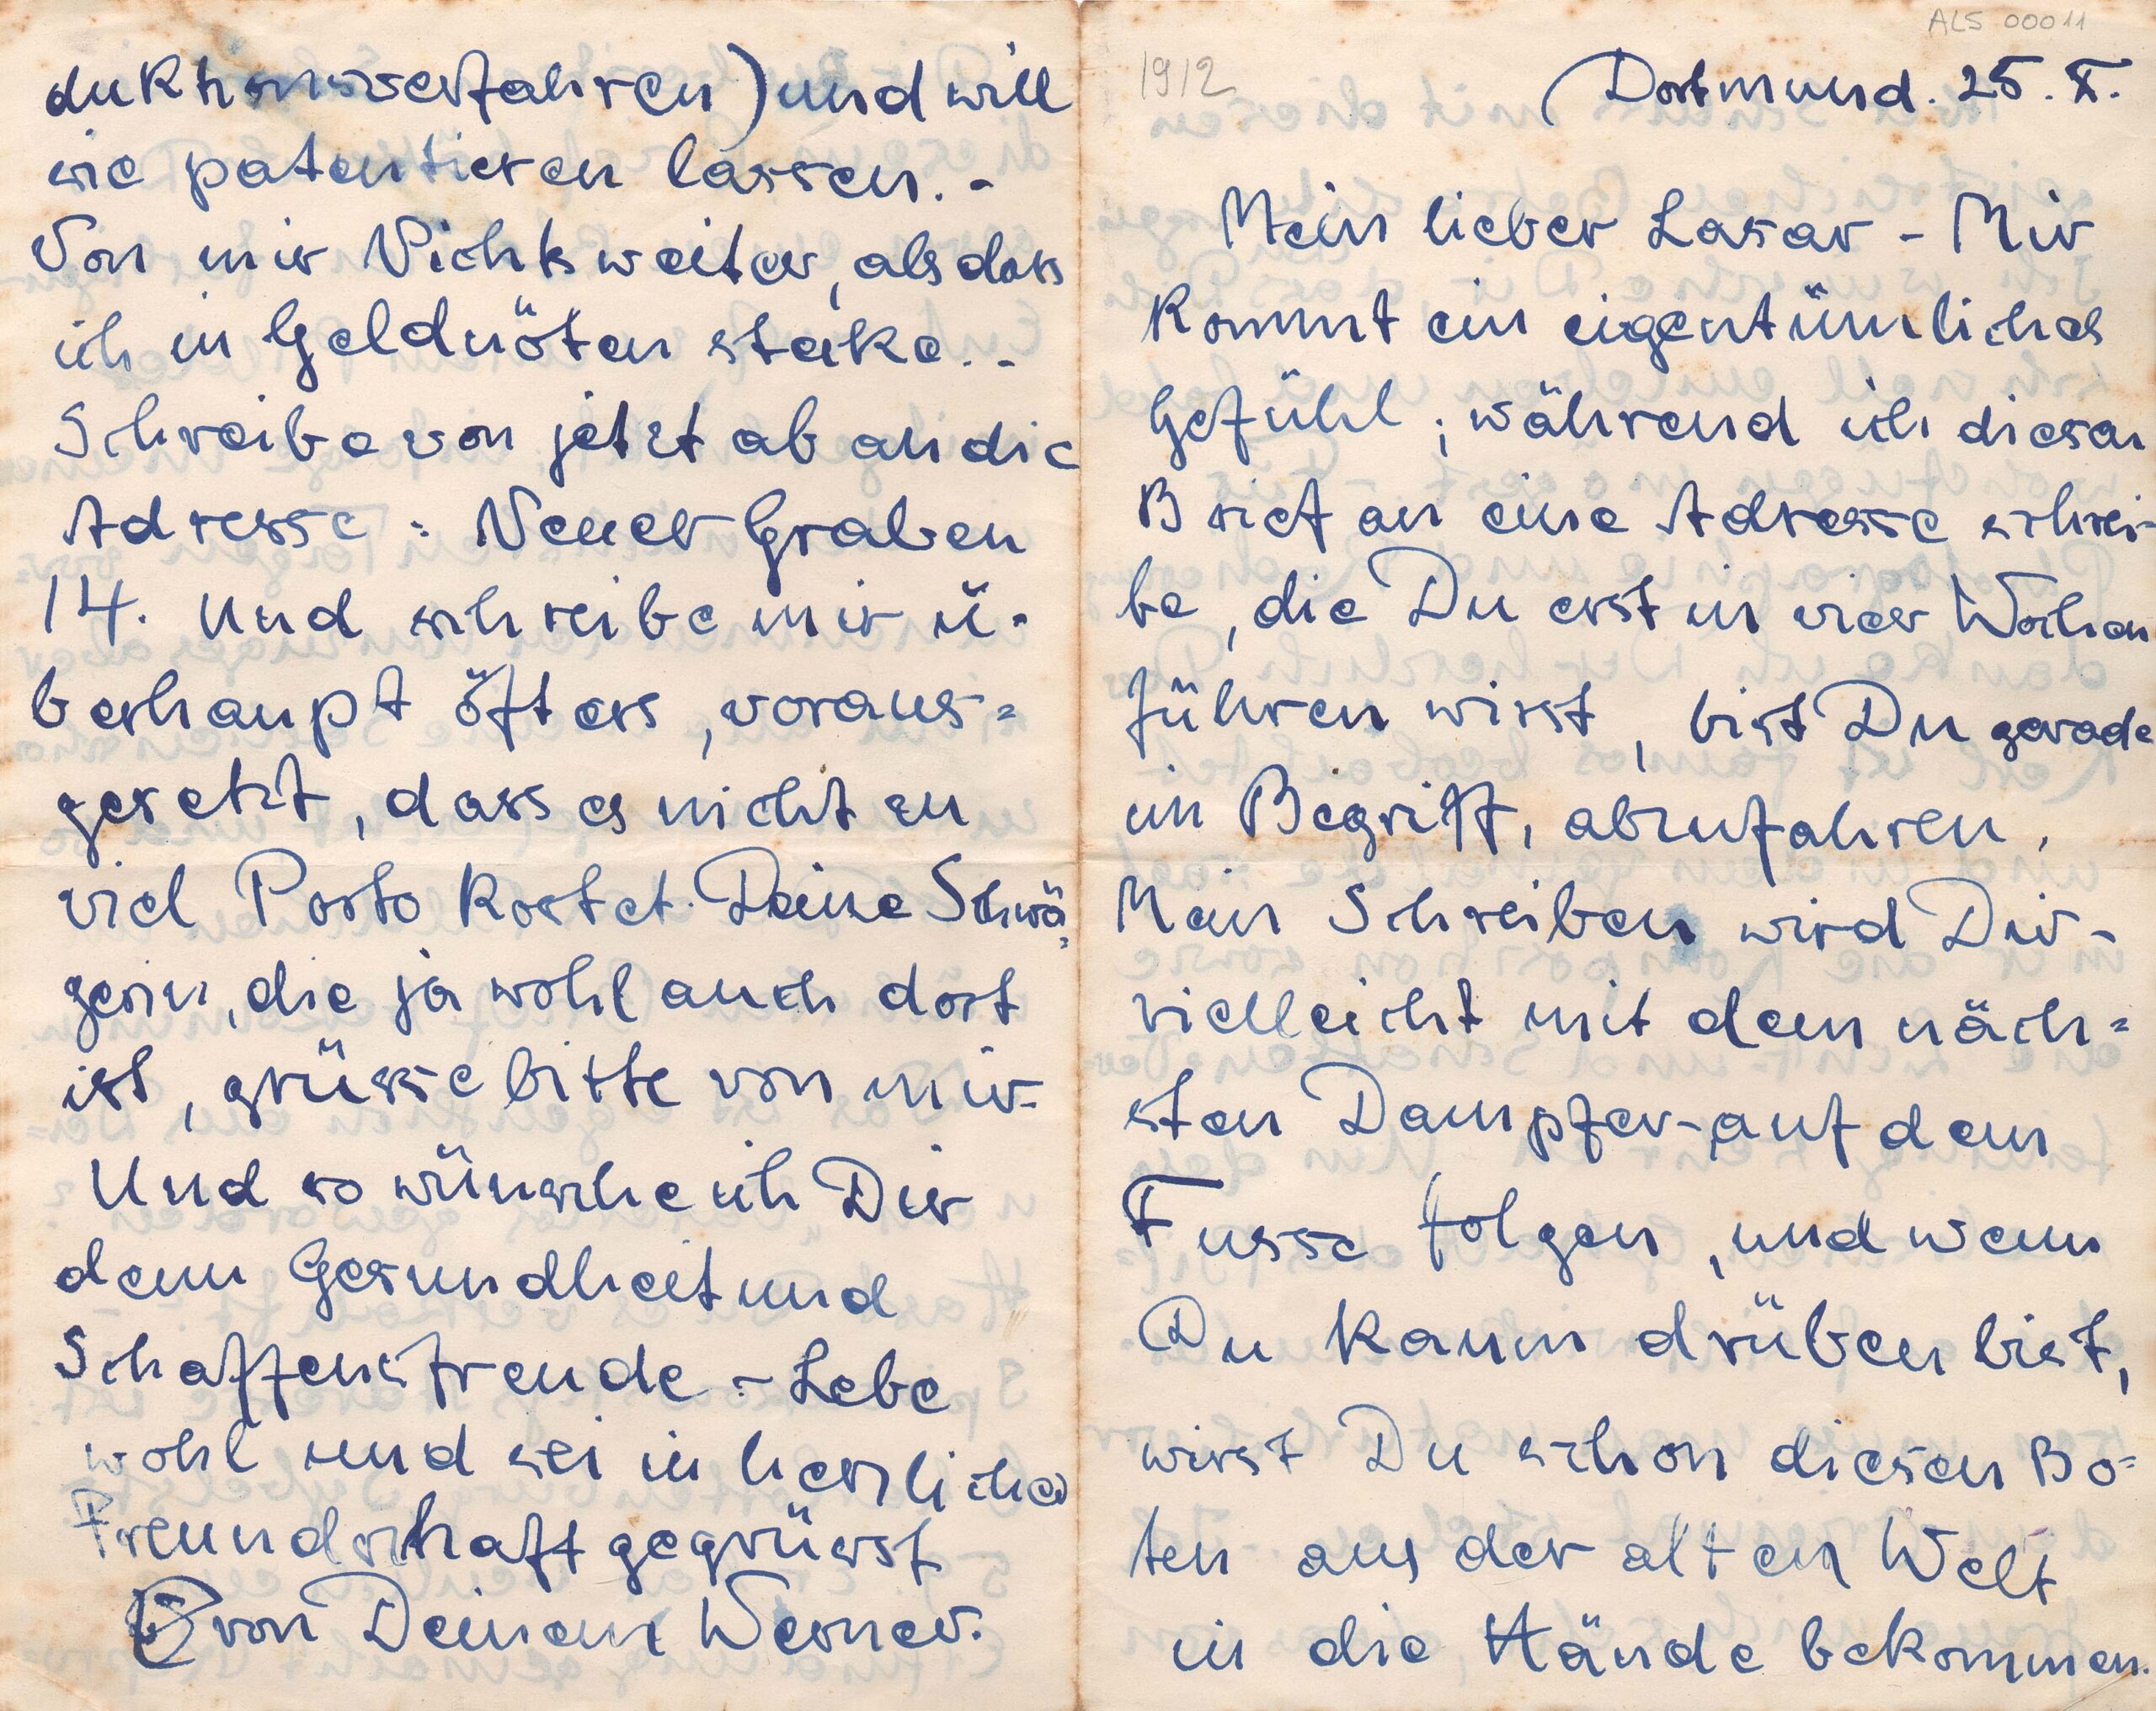 ALS 00011
1912
Dortmund. 25. X.
Mein lieber Lasar - Mir
kommt ein eigentümliches
Gefühl; während ich diesen
Brief an eine Adresse schrei-
be, die Du erst in vier Wochen
führen wirst, bist Du gerade
im Begriff, abzufahren,
Mein Schreiben wird Dir -
vielleicht mit dem näch=
sten Dampfer - auf dem
Fusse folgen, und wenn
Du kaum drüben bist,
wirst Du schon diesen Bo=
ten aus der alten Welt
in die Hände bekommen.
duktionsverfahren) und will
sie patentieren lassen. -
Von mir Nichts weiter, als dass
ich in Geldnöten stecke. . -
Schreibe von jetzt ab an die
Adresse: Neuer Graben
14. Und schreibe mir ü-
berhaupt öfters, voraus=
gesetzt, dass es nicht zu
viel Porto kostet. Deine Schwä,
gerin, die ja wohl auch dort
ist, grüsse bitte von mir.
Und so wünsche ich Dir
denn Gesundheit und
Schaffensfreude. - Lebe
wohl und sei in herzlicher
Freundschaft gegrüsst
von Deinem Werner.